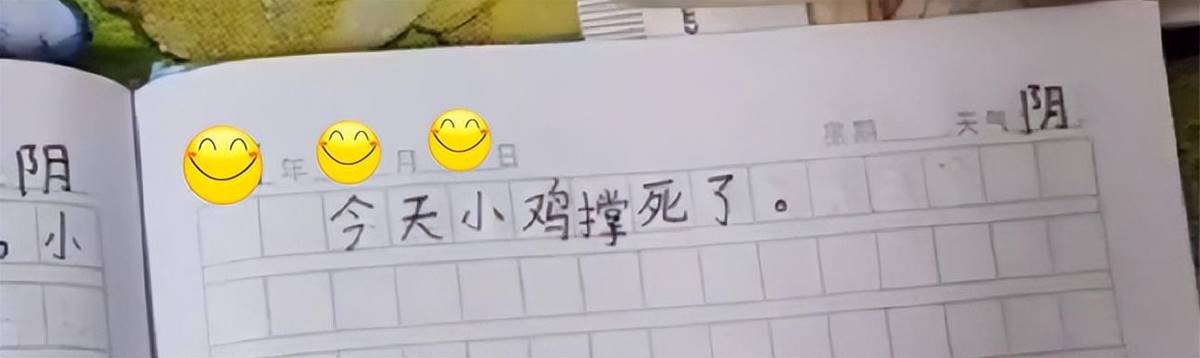 5
阴
年 月 日 星期 天气 阴
小
今天小鸡撑死了。